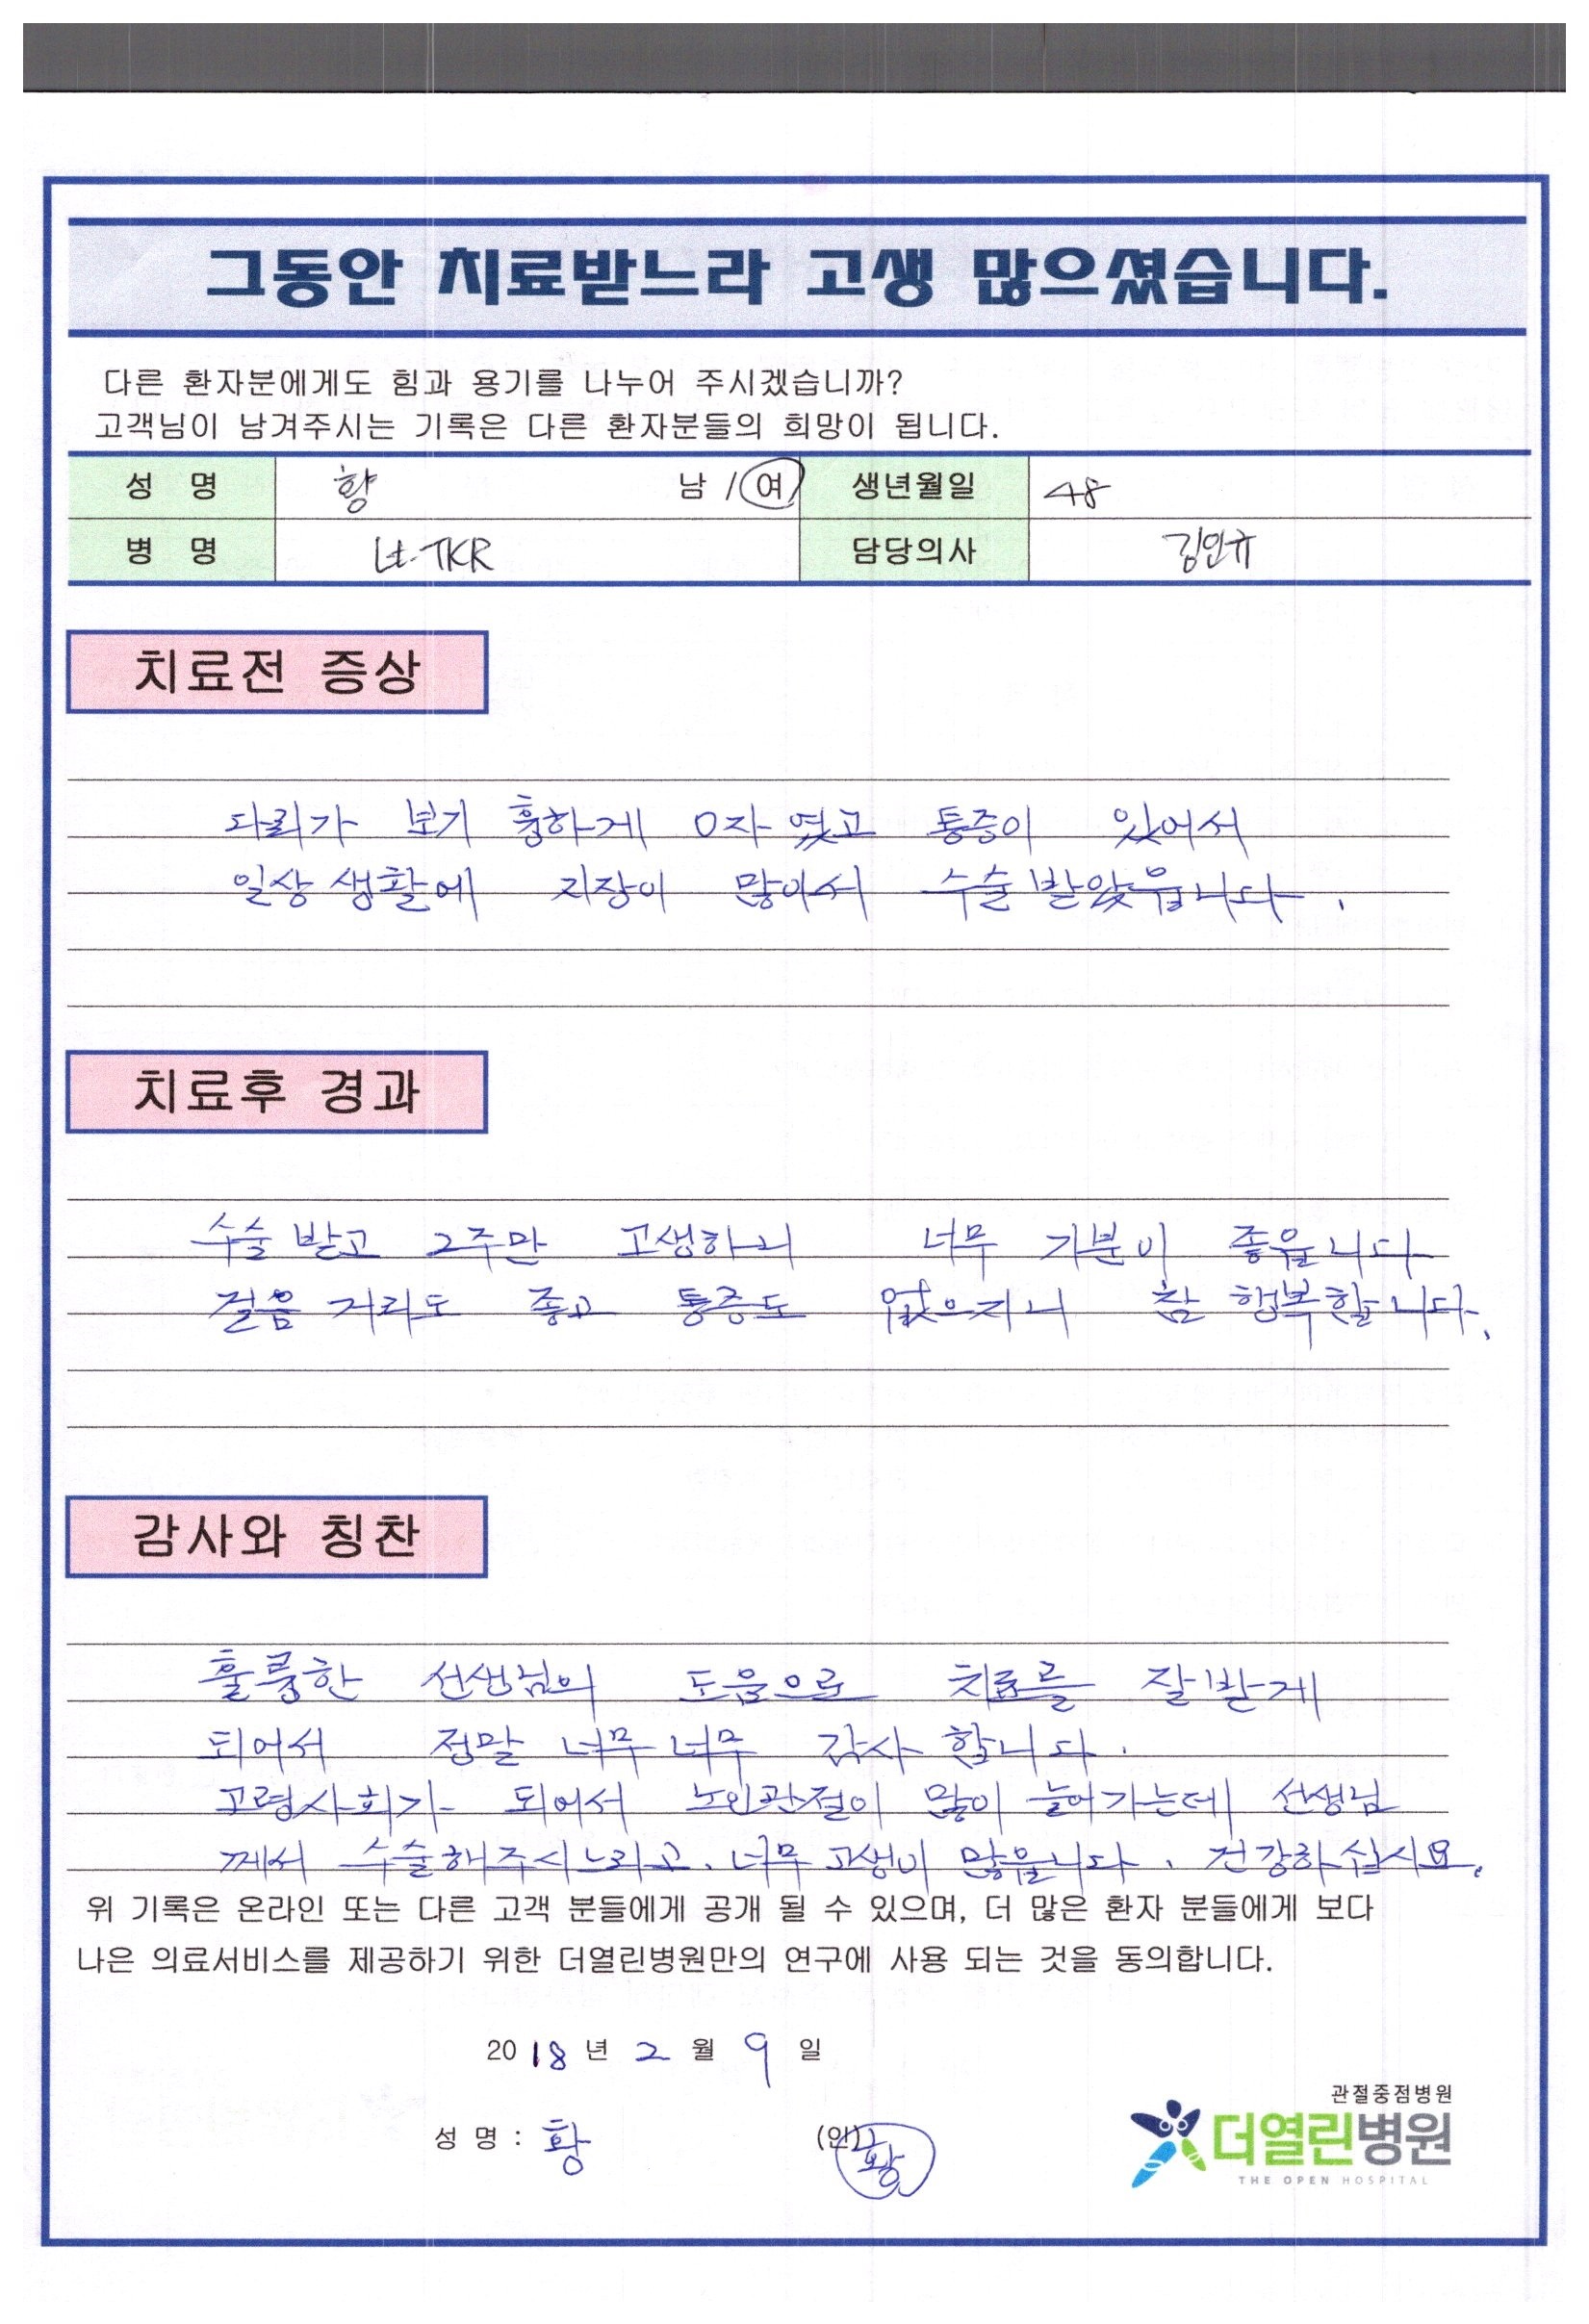 그동안 치료받느라 고생 많으셨습니다.
다른 환자분에게도 힘과 용기를 나누어 주시겠습니까?
고객님이 남겨주시는 기록은 다른 환자분들의 희망이 됩니다.
성 명 황 남 / 여 생년월일 48
병 명 Lt. TKR 담당의사 김인규
치료전 증상
다리가 보기 흉하게 O자 였고 통증이 있어서
일상 생활에 지장이 많아서 수술 받았읍니다.
치료후 경과
수술 받고 2주만 고생하니 너무 기분이 좋읍니다
걸음 거리도 좋고 통증도 없으지니 참 행복합니다.
감사와 칭찬
훌륭한 선생님의 도움으로 치료를 잘받게
되어서 정말 너무 너무 감사 합니다.
고령사회가 되어서 노인관절이 많이 늘어가는데 선생님
께서 수술해주시느라고. 너무 고생이 많읍니다. 건강하십시요.
위 기록은 온라인 또는 다른 고객 분들에게 공개 될 수 있으며, 더 많은 환자 분들에게 보다
나은 의료서비스를 제공하기 위한 더열린병원만의 연구에 사용 되는 것을 동의합니다.
2018 년 2 월 9 일
성 명 : 황 (인) 황
관절중점병원
더열린병원
THE OPEN HOSPITAL